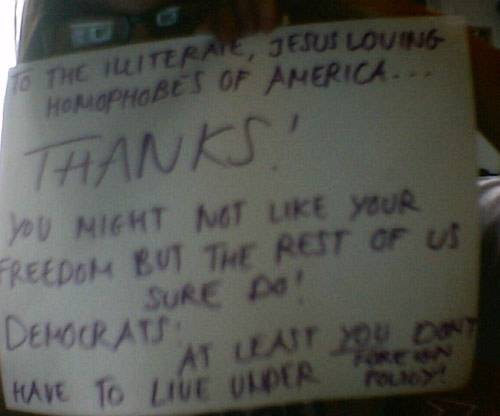 TO THE ILLITERATE, JESUS LOVING
HOMOPHOBES OF AMERICA...
THANKS!
YOU MIGHT NOT LIKE YOUR
FREEDOM BUT THE REST OF US
SURE DO!
DEMOCRATS:
AT LEAST YOU DON'T
HAVE TO LIVE UNDER FOREIGN
POLICY!